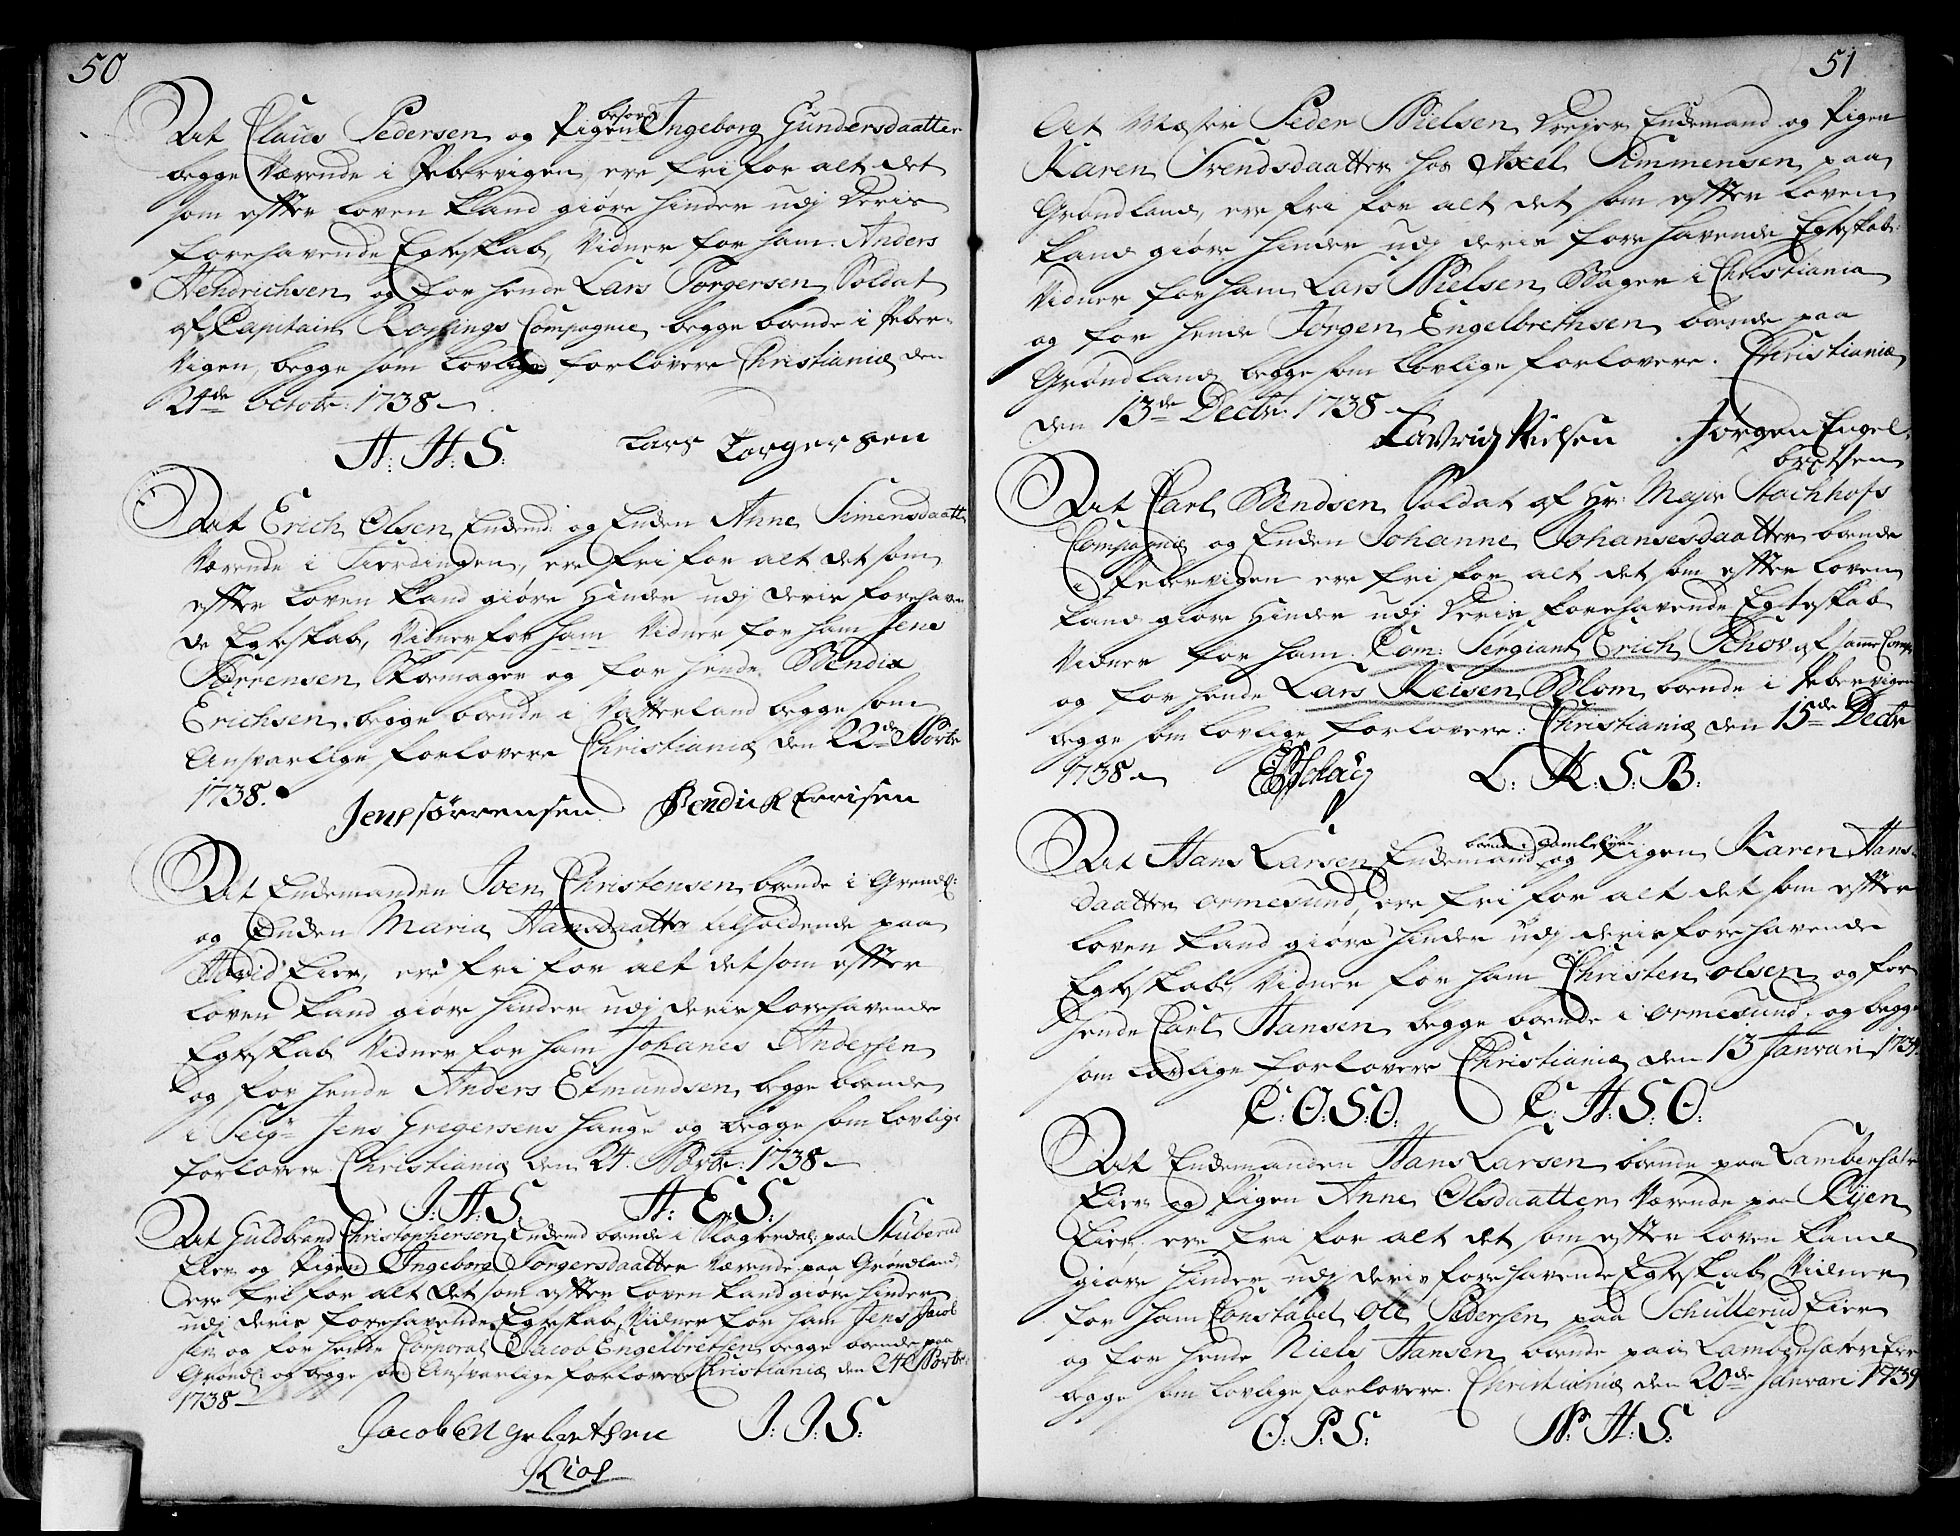 50
At Claus Pedersen og Pigen besovede Ingeborg Gundersdaatter
begge Værende i Pebervigen, ere fri for alt det
som efter Loven kand giøre hinder udj Deris
forehavende Egteskab, Vidner for ham Anders
Hendrichsen og for hende Lars Torgersen Soldat
af Capitain Compagnie, begge boende i Peber-
Vigen, begge som Lovlige forlovere Christiania den
24de Octobr: 1738
A. H. S. Lars Torgersen
At Erich Olsen Enkemd: og Enken Anne Simensdaatt
Værende i Fierdingen, ere fri for alt det som
efter Loven kand giøre Hinder udj Deris forehaven
de Egteskab, Vidner for ham Vidner for ham Jens
Sørrensen Skoemager og for hende Bendix
Erichsen, begge boende i Vatterland begge som
Ansvarlige forlovere Christiania den 22de Novbr
1738.
Jens Sørrensen Bendick Errisen
At Enkemanden Joen Christensen, boende i Grøndl:
og Enken Maria Hansdaatter tilholdende paa
Eier, ere fri for alt det som efter
Loven kand giøre hinder udj deris forehavende
Egteskab, Vidner for ham Johanes Andersen
og for hende Anders Etmundsen, begge boende
i Seigr Jens Gregersens Hauge og begge som Lovlig:
forlovere. Christiania den 24. Novbr: 1738
J. A. S. A: E. S:
At Guldbrand Christophersen Enkemd boende i Magerdal: paa Stuberud
Eier og Pigen Ingeborg Torgersdaatter Værende paa Grøndland,
ere fri for alt det som efter Loven kand giøre hinder
udj deris forehavende Egteskab, Vidner for ham Jens Jacob
sen og for hende Corporal Jacob Engelbretsen begge boende paa
Grøndl: og begge som Ansvarlige forlovere Christiania den 24 Novbr:
1738
Jacob En gebretsen J. J. S.
51
At Mæster Peder Nielsen Dreyer Enkemand og Pigen
Karen Svendsdaatter hos Axel Simmensen paa
Grøndland, ere fri for alt det som efter Loven
kand giøre hinder udj deris forehavende Egteskab:
Vidner for ham Lars Nielsen Bager i Christiania
og for hende Jørgen Engelbrethsen boende paa
Grøndland begge som Lovlige forlovere. Christiania
den 13de Decbr: 1738
Lavridz Nielsen Jørgen Engel,
bretsen
At Carl Bendsen Soldat af Hr: Major Stachhofs
Compagnie og Enken Johanne Johansesdaatter boende
i Pebervigen ere fri for alt det som efter Loven
kand giøre Hinder udj Deris forehavende Egteskab
Vidner for ham Com: Sergiant Erich Schov af samme Comp:
og for hende Lars Keisen Blom boende i Pebervigen
begge som Lovlige forlovere: Christiania den 15de Decbr
1738 L: K. S. B.
At Hans Larsen Enkemand boende i Gamlebyen og Pigen Karen Hans-
daatter Ormesund, ere fri for alt det som efter
Loven kand giøre hinder udj deris forehavende
Egteskab, Vidner for ham Christen Olsen og for
hende Carl Hansen begge boende i Ormesund, og begge
som Lovlige forlovere Christiania den 13 Januari 1739
C. O. S. O. C: H. S. O.
At Enkemanden Hans Larsen boende paa Lambersæter
Eier og Pigen Anne Olsdaatter Værende paa Ryen
Eier ere fri for alt det som efter Loven kand
giøre hinder udj deris forehavende Egteskab, Vidner
for ham Constabel Ole Pedersen paa Schullerud Eier
og for hende Niels Hansen boende paa Lambersæter Eier
begge som Lovlige forlovere. Christiania den 20de Januari 1739
O. P. S. N. H. S.